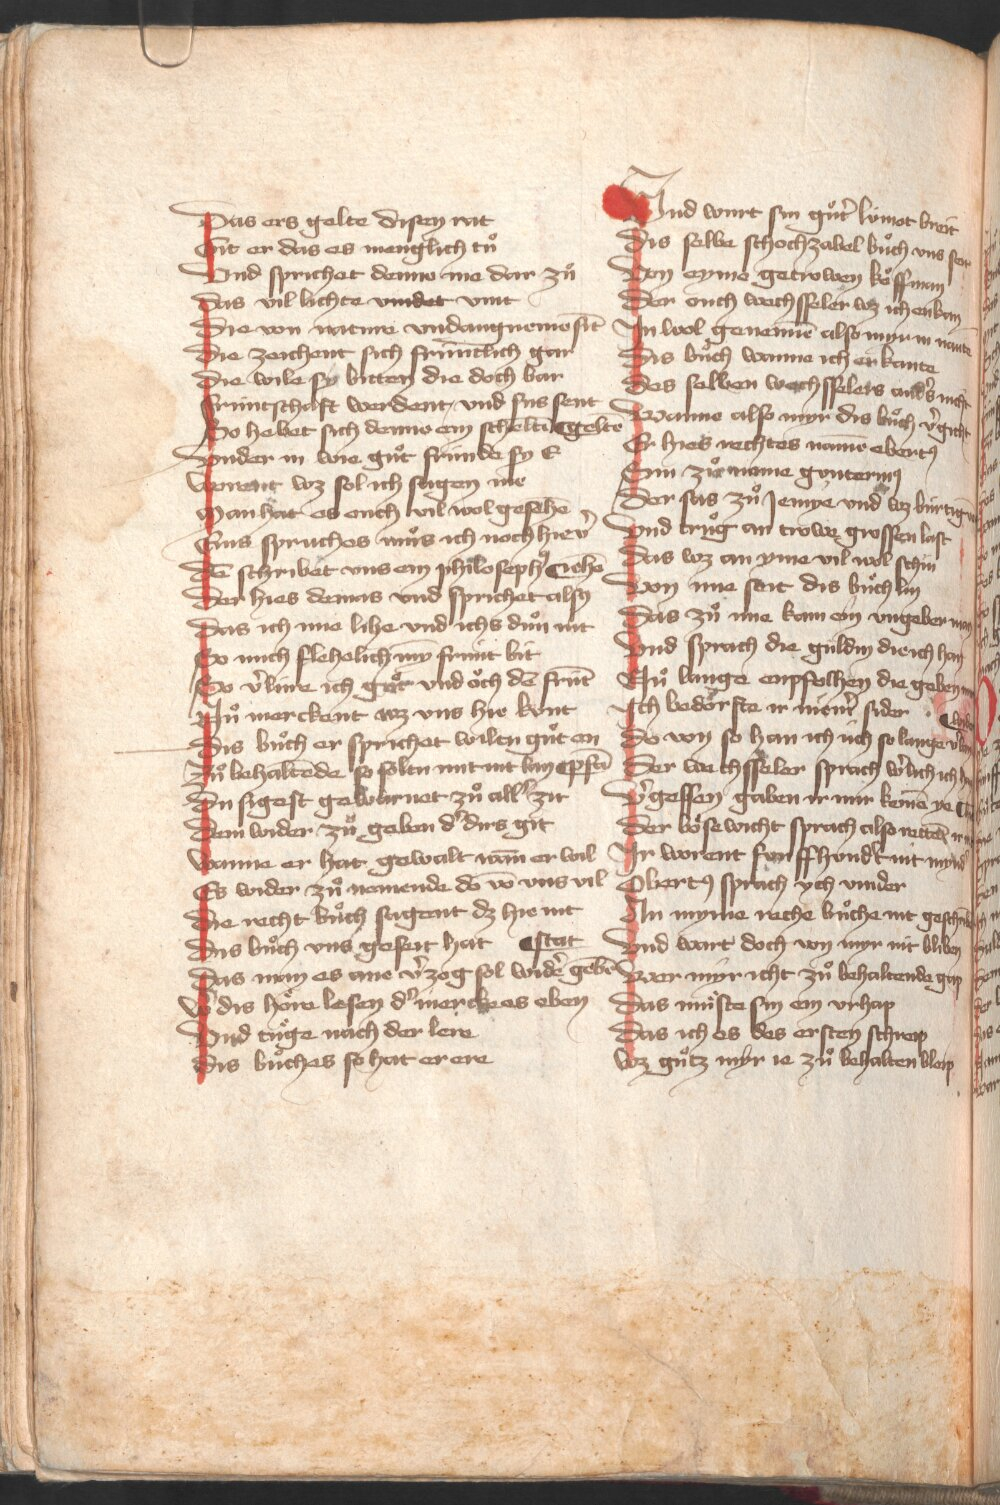 Das ers gelte disen rat
Git er das es menglich tuͦ
Vnd sprichet denno me dar zuͦ
Das vil lichte vindet vint
Die von nature vndangneme sint
Die zeichent sich früntlich gar
Die wile sy bitten die doch bar
Früntschaft werdent vnd sus sent
So hebet sich denno ein schelten gelte
Vnder in wie guͦt fründe sy e
Worent wz sol ich sagen me
Man hat es ouch vil wol gesehē
Eins spruches muͦs ich noch hie v̉
Dē schribet vns ein philosophꝰ iehē
Der hies demas vnd sprichet alsy
Das ich ime lihe vnd ichs duͦn nit
So mich flehelich min frünt bit
So v̉lüre ich guͦt vnd oͮch dē frūt
Nuͦ merckent wz vns hie kunt
Dis buͦch er sprichet wiltu guͦt en
Zuͦ behaltende so soltu mit nit lan pfā
Du sigest gewarnet zuͦ aller zit
Dem wider zuͦ geben d̉ dirs git
Wanne er hat gewalt wān er wil
Es wider zuͦ nemende do vō vns vil
Die recht buͦch sagent dz hie mit
Dis buͦch vns geseit hat stat
Das man es ane v̉zog sol wider gebē
Wer dis höre lesen d̉ mercke es eben
Vnd tuͦge nach der lere
Dis buͦches so hat er ere
Vnd wurt sin guͦter lümot breit
Dis selbe schochzabel buͦch vns seit
Von eyme getrowen koͮffman
Der ouch wechsseler wz ich enkan
In wol genennē also myr in nante
Dis buͦch wanne ich erkante
Des selben wechsselers anders nicht
Wanne also myr dis buͦch v̉gicht
Er hies rechtes namē ebertꝰ
Sin zuͦ name gvuterinꝰ
Der sas zuͦ Jenue vnd wz bürtig
Vnd truͦg an trowe grossen last
Das wz an yme vil wol schin
Von ime seit dis buͦchlin
Das zuͦ ime kam ein vngeber man
Vnd sprach die guldin die ich han
Nuͦ lange enpfolhen die geben
Ich bedörfte ir niemer sider
Do von so han ich uch so lange
Der wechsseler sprach werlich ich
V̉gessen gaben ir mir keinē ye
Der bösewicht sprach also rettē ir
Ir worent funffhundert nit mynder
Obertꝰ sprach ych vinder
In myme reche buͦche nit geschribē
Vnd wart doch von myr nit bliben
Wer myr icht zuͦ behaltende gap
Das müste sin ein vrhap
Das ich es des ersten schreip
Wz guͦtz mir ie zuͦ behalten bleip